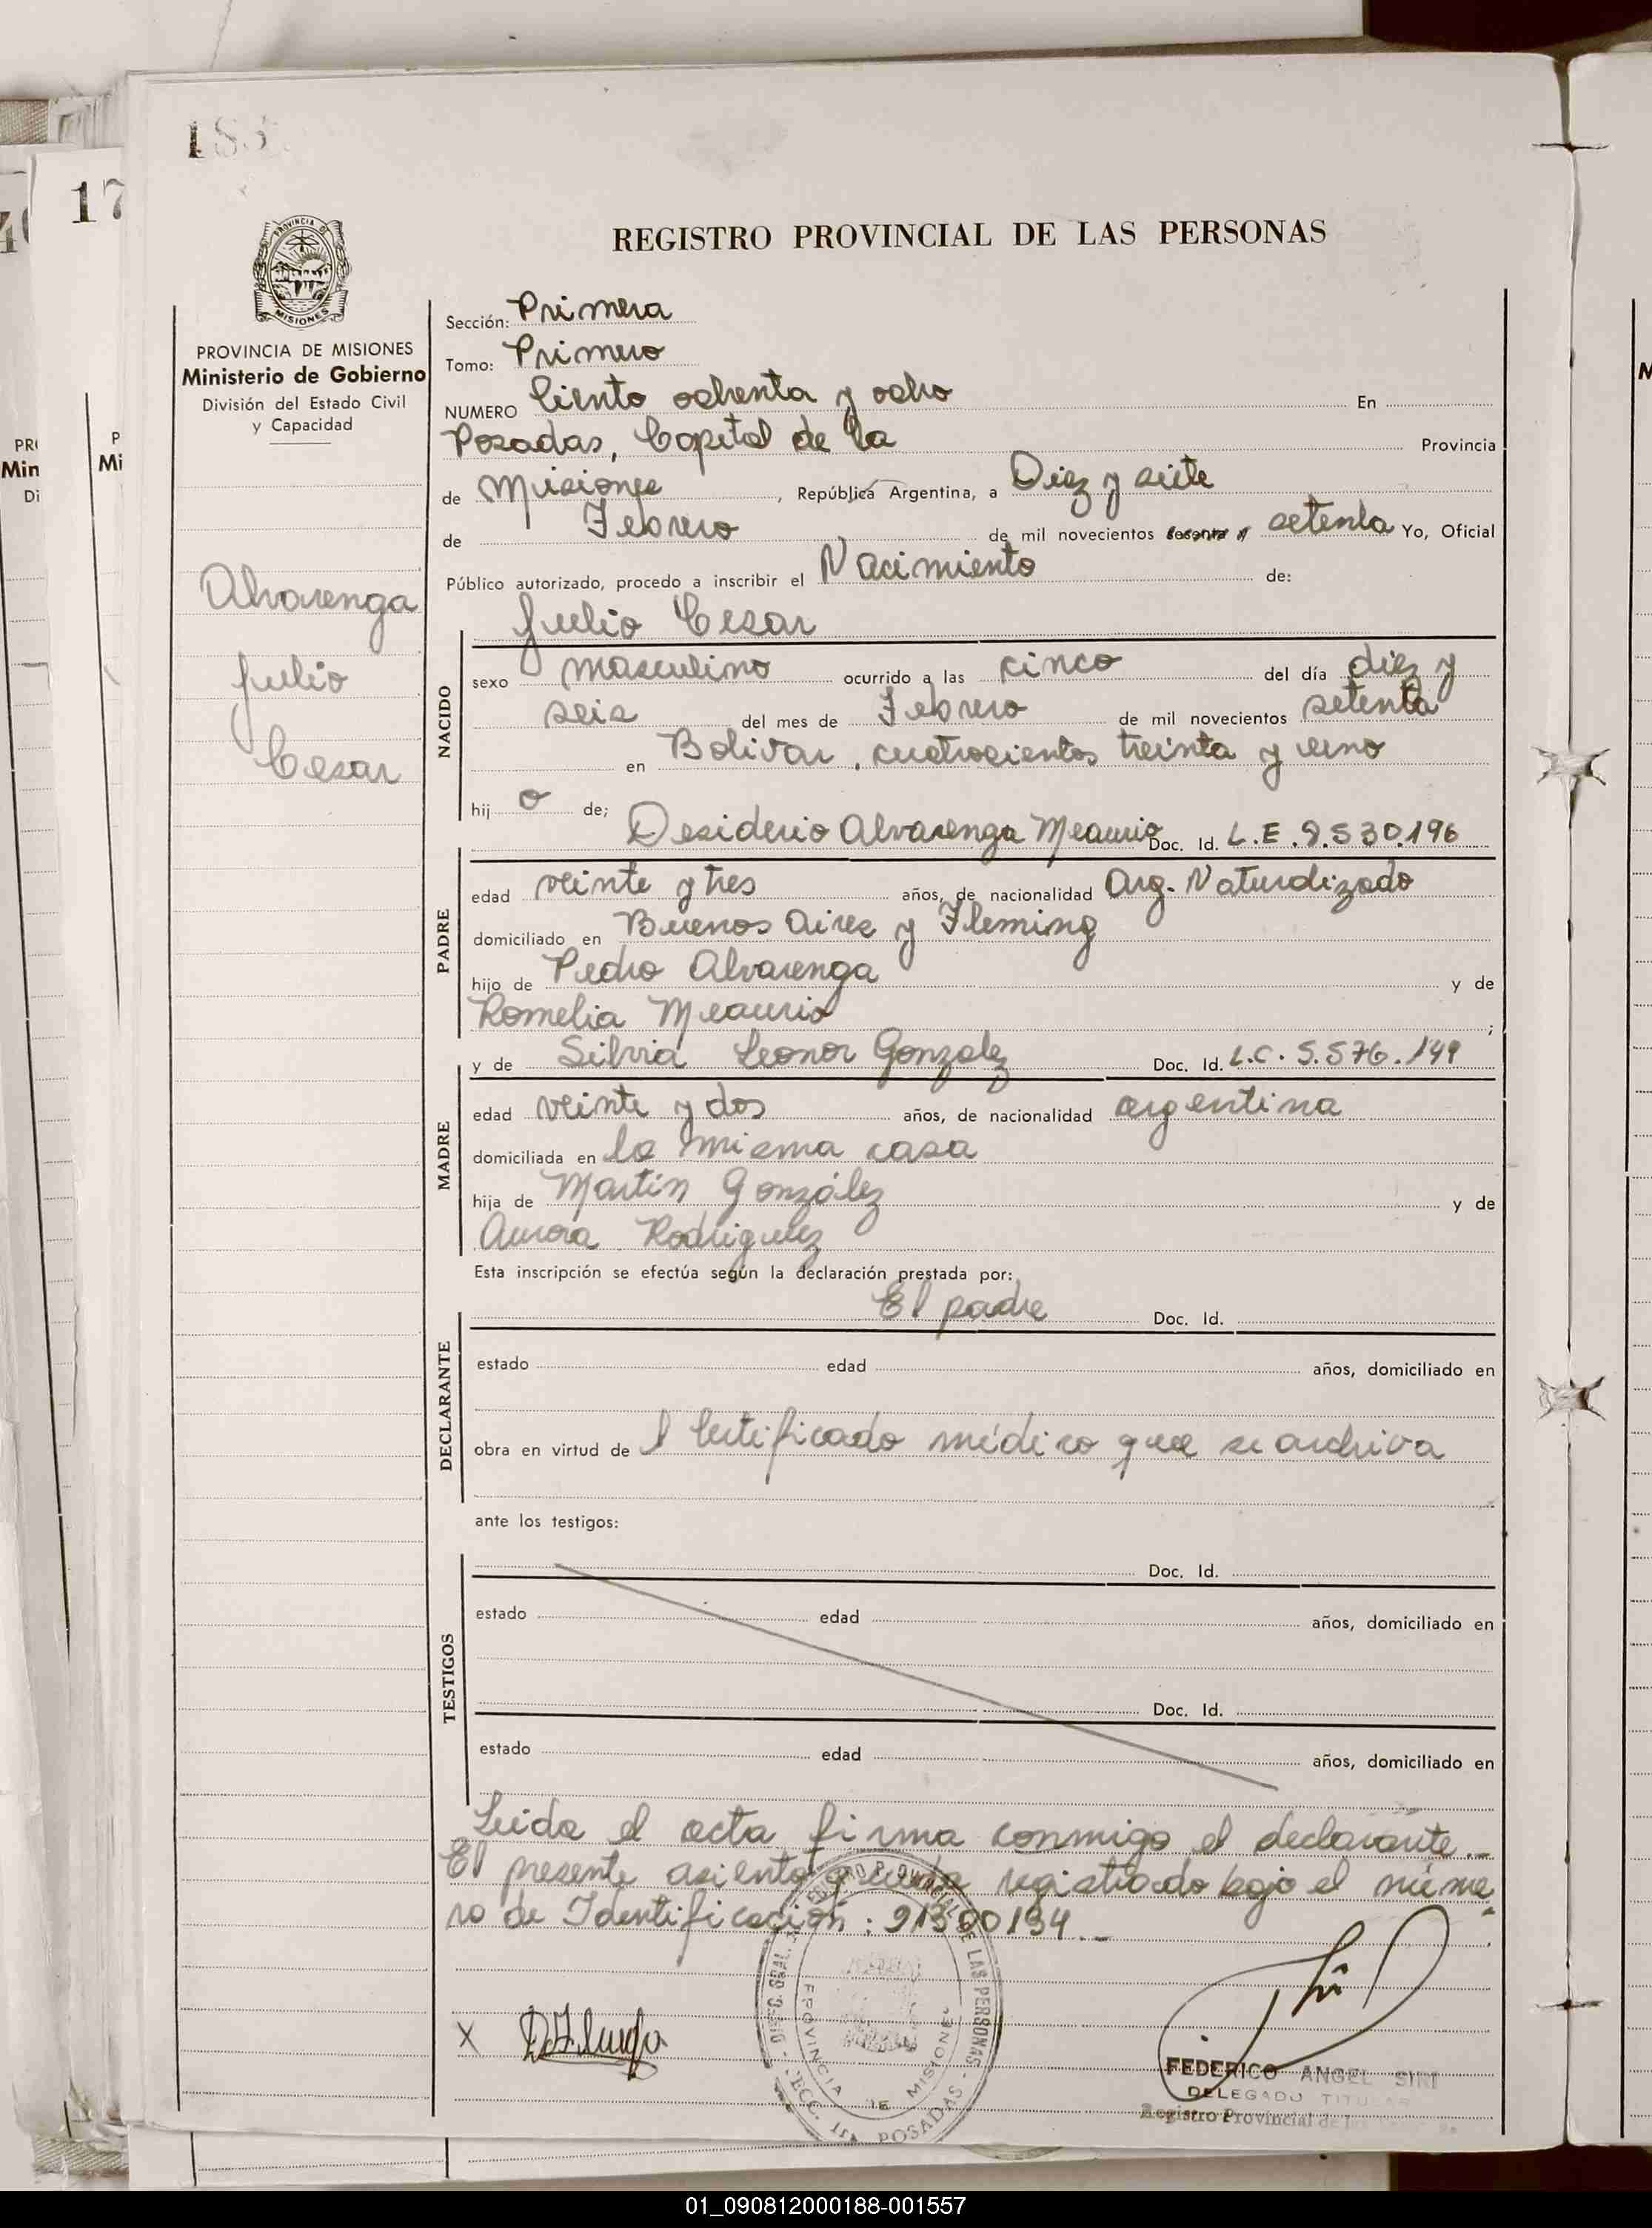 188
17
REGISTRO PROVINCIAL DE LAS PERSONAS
PROVINCIA DE MISIONES
Ministerio de Gobierno
División del Estado Civil
y Capacidad
Alvarenga
Julio
Cesar
Sección: Primera
Tomo: Primero
NUMERO Ciento ochenta y ocho En
Posadas, Capital de la Provincia
de Misiones, República Argentina, a Diez y siete
de Febrero de mil novecientos sesenta y setenta Yo, Oficial
Público autorizado, procedo a inscribir el Nacimiento de:
Julio Cesar
NACIDO
sexo masculino ocurrido a las cinco del día diez y
seis del mes de Febrero de mil novecientos setenta
en Bolivar, cuatrocientos treinta y uno
hij o de;
Desiderio Alvarenga Meaurio Doc. Id. L.E. 8.530.196
PADRE
edad veinte y tres años, de nacionalidad Arg. Naturalizado
domiciliado en Buenos Aires y Fleming
hijo de Pedro Alvarenga y de
Romelia Meaurio ;
y de Silvia Leonor Gonzalez Doc. Id. L.C. 5.576.149
MADRE
edad veinte y dos años, de nacionalidad argentina
domiciliada en la misma casa
hija de Martín González y de
Aurora Rodriguez
Esta inscripción se efectúa según la declaración prestada por:
El padre Doc. Id.
DECLARANTE
estado edad años, domiciliado en
obra en virtud de l Certificado médico que se archiva
ante los testigos:
TESTIGOS
Doc. Id.
estado edad años, domiciliado en
Doc. Id.
estado edad años, domiciliado en
Leida el acta firma conmigo el declarante.--
El presente asiento queda registrado bajo el núme-
ro de Identificación: 91300194.--
X
PROVINCIA DE MISIONES
SECC. 1ra. POSADAS
FEDERICO ANGEL SIRI
DELEGADO TITULAR
Registro Provincial de las
01_090812000188-001557